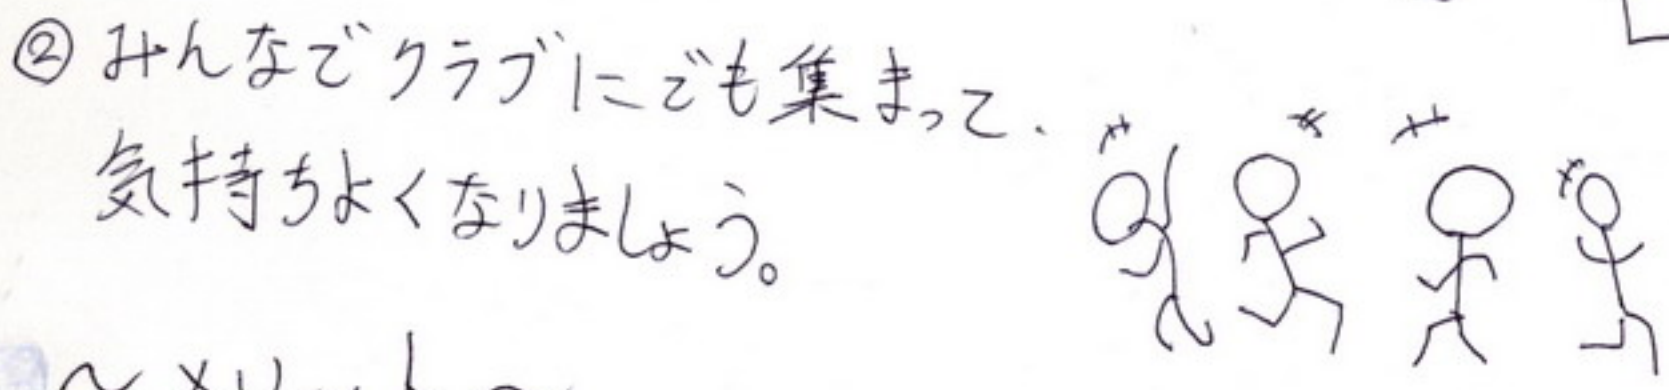 ② みんなでクラブにでも集まって、
気持ちよくなりましょう。